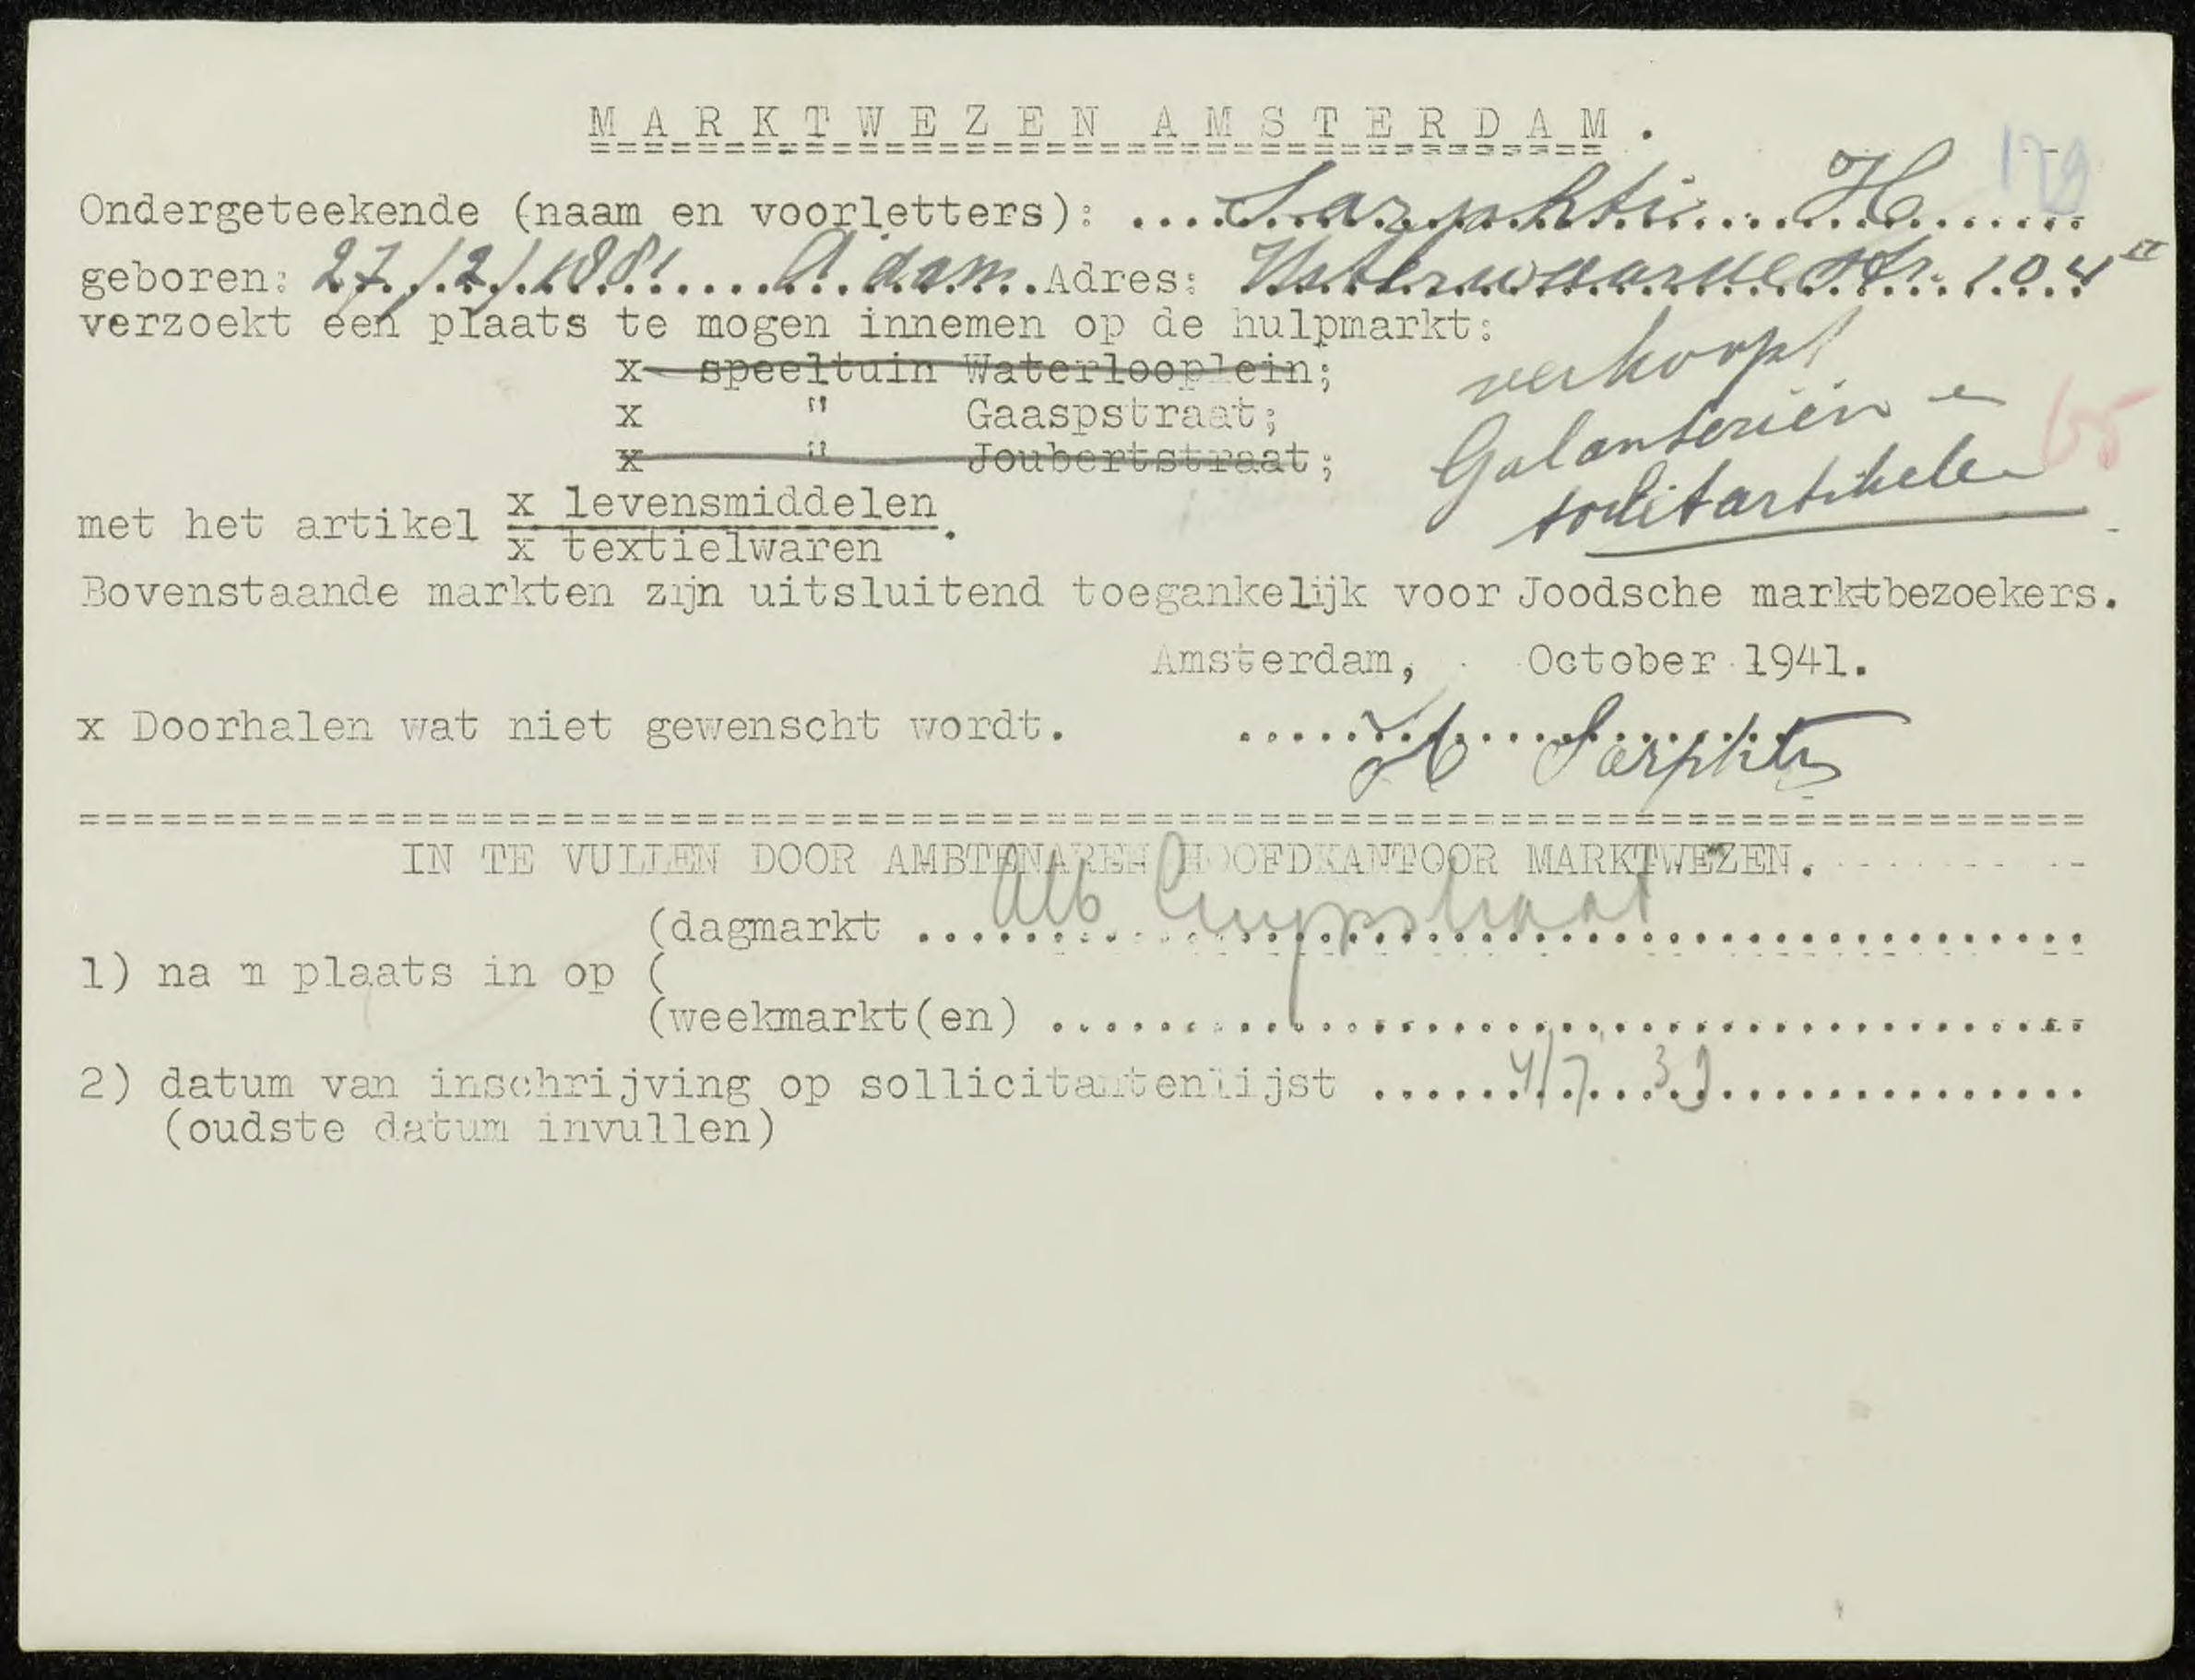 MARKTWEZEN AMSTERDAM.
179
Ondergeteekende (naam en voorletters): Sarphati H
geboren: 27/2/1881 A'dam. Adres: Uiterwaardestr. 104 II
verzoekt een plaats te mogen innemen op de hulpmarkt:
x speeltuin Waterlooplein;
x " Gaaspstraat;
x " Joubertstraat;
verkoopt
Galanteriën en
toiletartikelen
65
met het artikel x levensmiddelen
x textielwaren.
Bovenstaande markten zijn uitsluitend toegankelijk voor Joodsche marktbezoekers.
Amsterdam, October 1941.
x Doorhalen wat niet gewenscht wordt.
H Sarphati
IN TE VULLEN DOOR AMBTENAREN HOOFDKANTOOR MARKTWEZEN.
(dagmarkt Alb Cuypstraat
1) na m plaats in op (
(weekmarkt(en)
2) datum van inschrijving op sollicitantenlijst 4/7 39
(oudste datum invullen)